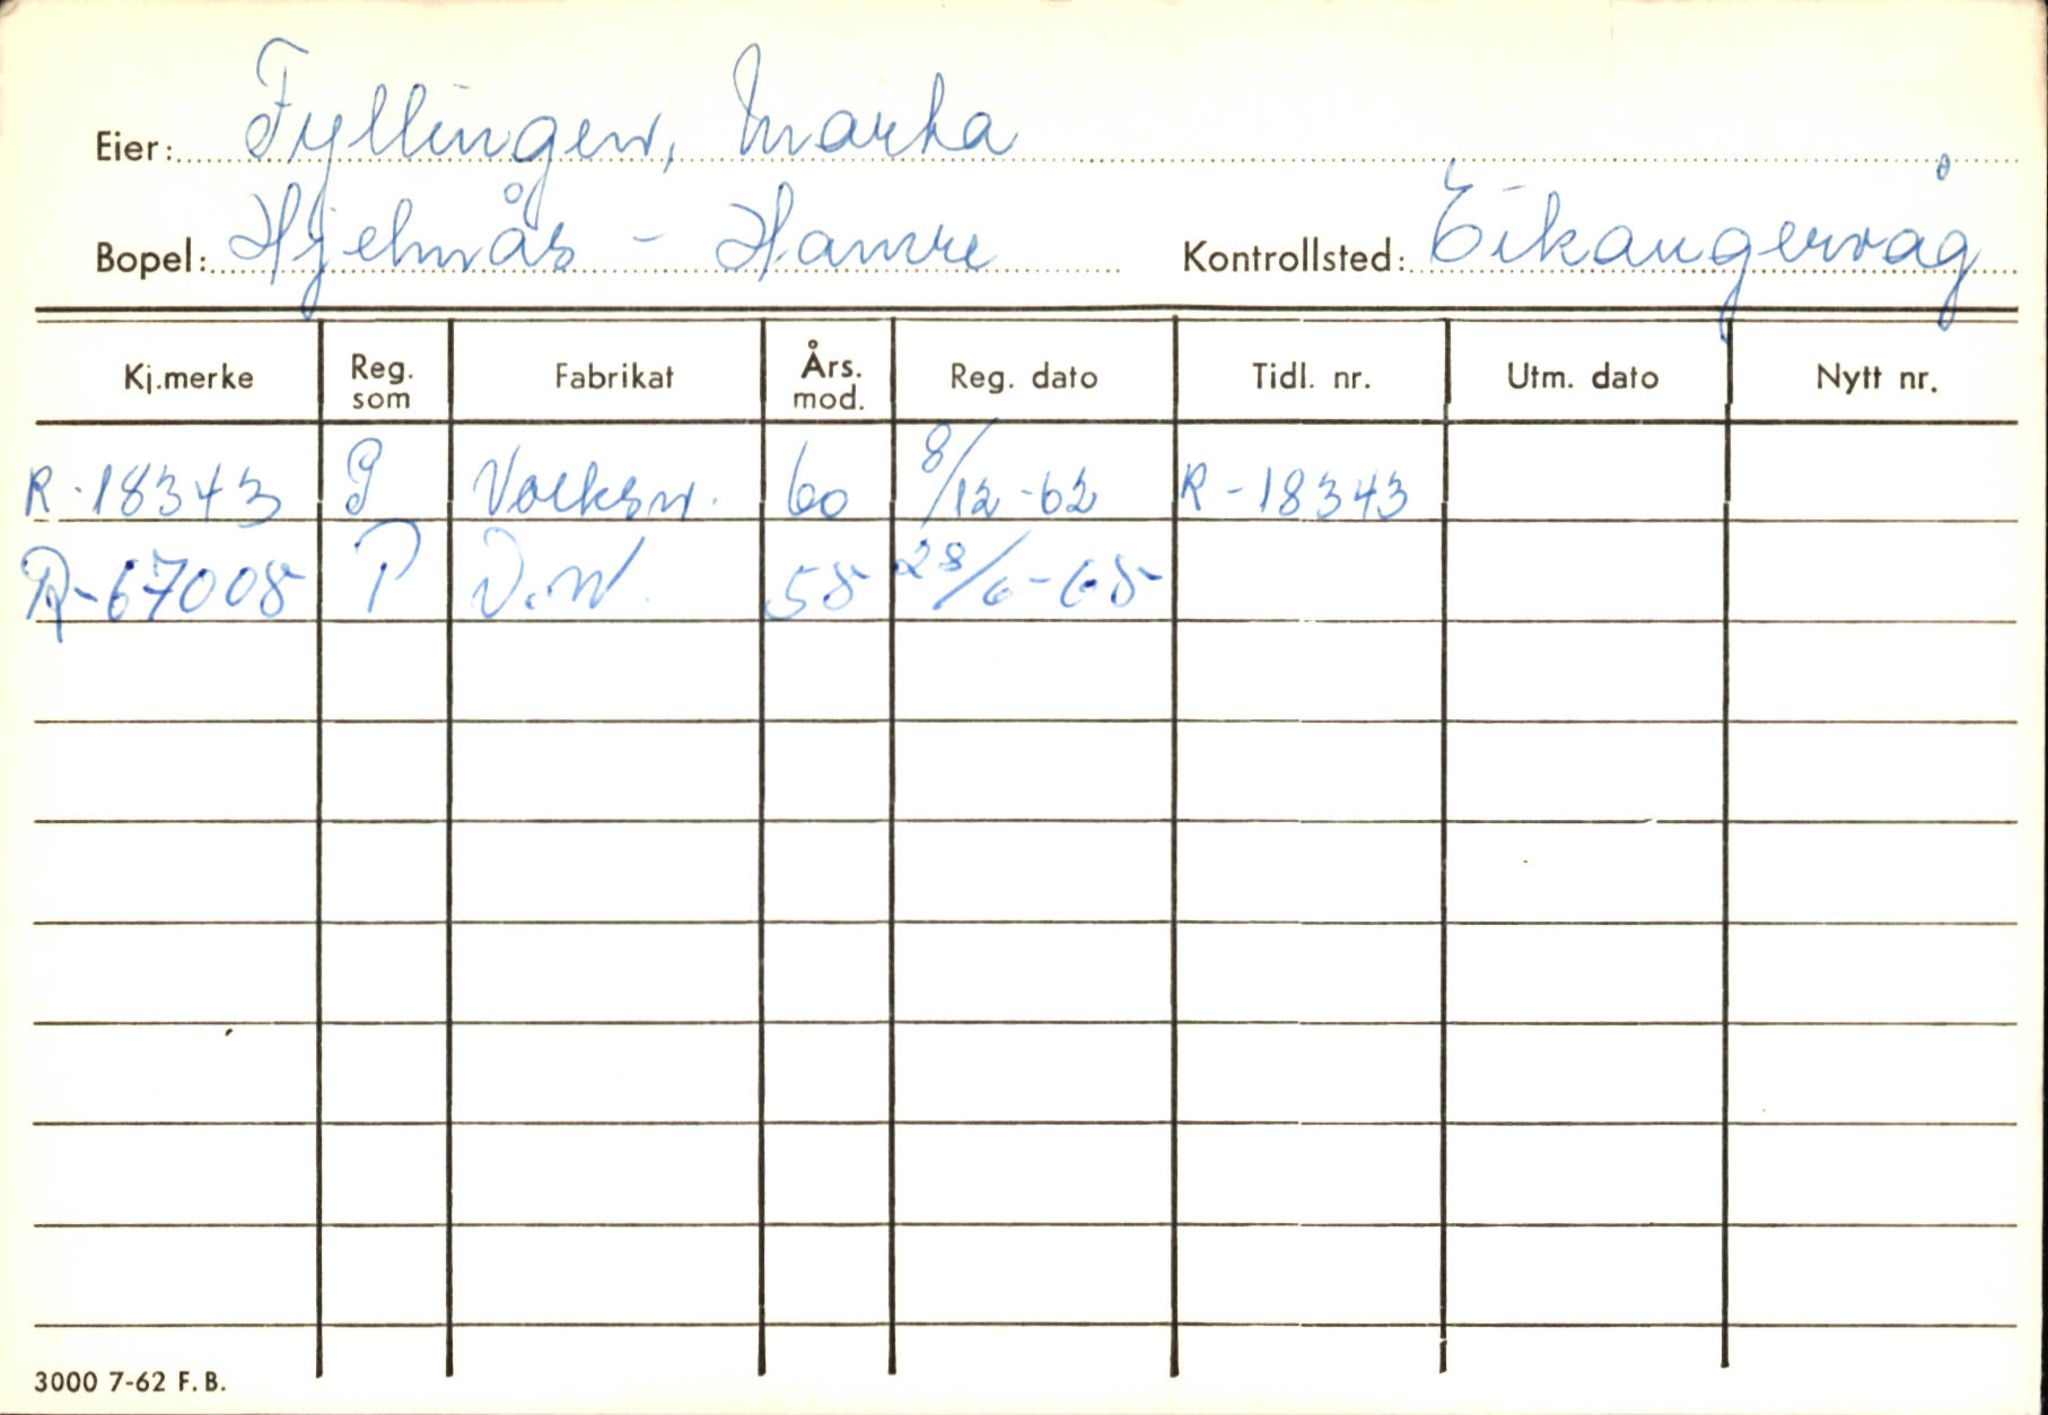 Eier: Fyllingen, Marta
Bopel: Hjelmås - Hamre Kontrollsted: Eikangervåg
Kj.merke Reg. som Fabrikat Års. mod. Reg. dato Tidl. nr. Utm. dato Nytt nr.
R-18343 P Volksw. 60 8/12-62 R-18343
R-67008 P V.W. 58 28/6-68
3000 7-62 F.B.